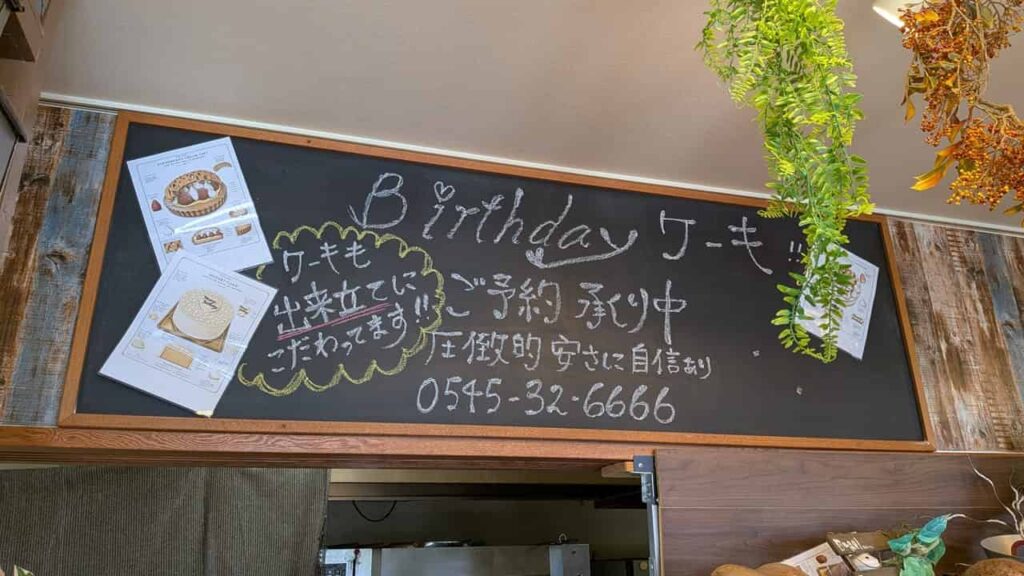 Birthday ケーキ!!
ケーキも
出来立てに
こだわってます!!
ご予約 承り中
圧倒的 安さに自信あり
0545-32-6666